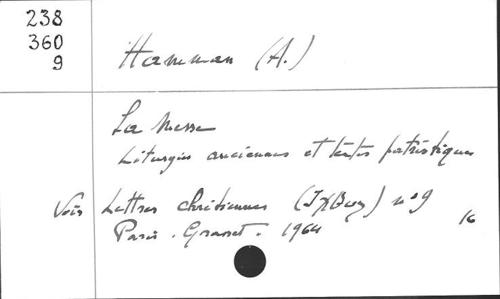 238
360
9
Hamman (A.)
La Messe
Liturgies anciennes et textes patristiques
Voir Lettres chrétiennes (Ix Bay) n° 9
Paris. Grasset. 1964
16